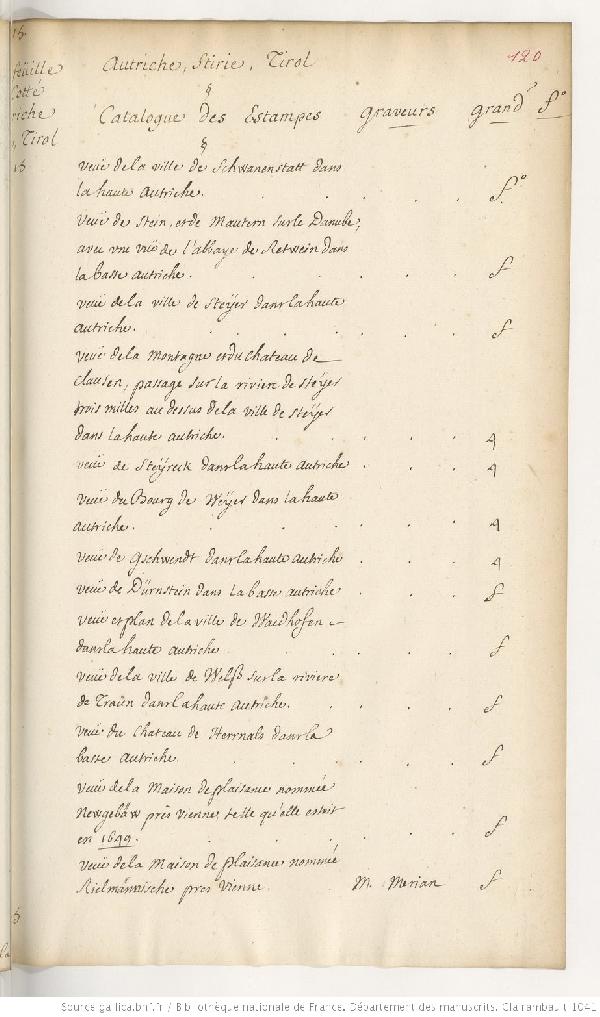 15.
feüille
Cotté
riche
, Tirol
15
Autriche, Stirie, Tirol
120
§
Catalogue des Estampes graveurs grandr. fo.
§
veüe de la ville de Schwanenstatt dans
la haute autriche. . . . . fo.
Veüe de Stein, et de Mautern sur le Danube,
avec vne vuë de l'abbaye de Retwein dans
la basse autriche. . . . . f
veüe de la ville de Steÿer dans la haute
autriche. . . . . f
veüe de la montagne et du chateau de
clausen, passage sur la riviere de steÿer
trois milles au dessus de la ville de steÿer
dans la haute autriche. . . . 4
veüe de Steÿreck dans la haute autriche . . . 4
veüe du Bourg de Weÿer dans la haute
autriche. . . . . 4
veüe de Gschwendt dans la haute autriche . . . 4
veüe de Dürnstein dans la basse autriche . . . f
veüe et plan de la ville de Waidhofen
dans la haute autriche . . . f
veüe de la ville de Welß sur la riviere
de Traün dans la haute autriche. . . . f
veüe du Chateau de Herrnals dans la
basse autriche . . . . f
veüe de la Maison de plaisance nommée
Newgebäw prés vienne, telle qu'elle estoit
en 1649. . . . . f
veüe de la Maison de plaisance nommée
Kielmännische prés Vienne M. Merian f
5
Source gallica.bnf.fr / Bibliothèque nationale de France. Département des manuscrits. Clairambault 1041